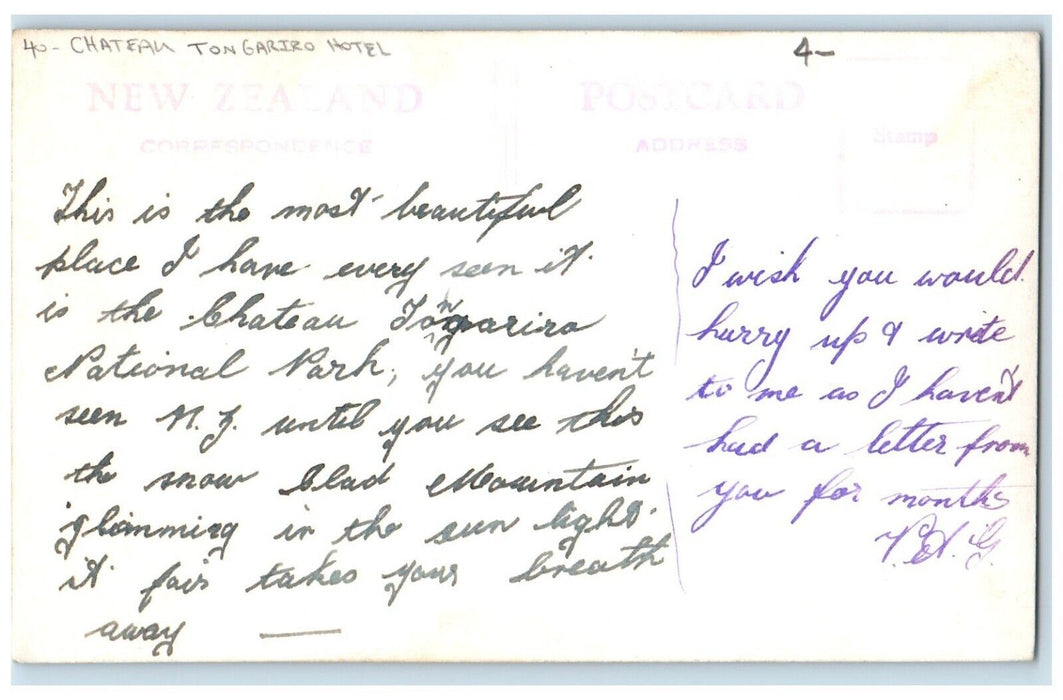 40 - CHATEAU TONGARIRO HOTEL
4-
NEW ZEALAND
POSTCARD
CORRESPONDENCE
ADDRESS
Stamp
This is the most beautiful
place I have every seen it.
is the Chateau Tongariro
National Park, you haven't
seen N.Z. until you see this
the snow Clad Mountain
glimming in the sun light.
it fair takes your breath
away —
I wish you would
hurry up & write
to me as I haven't
had a letter from
you for months